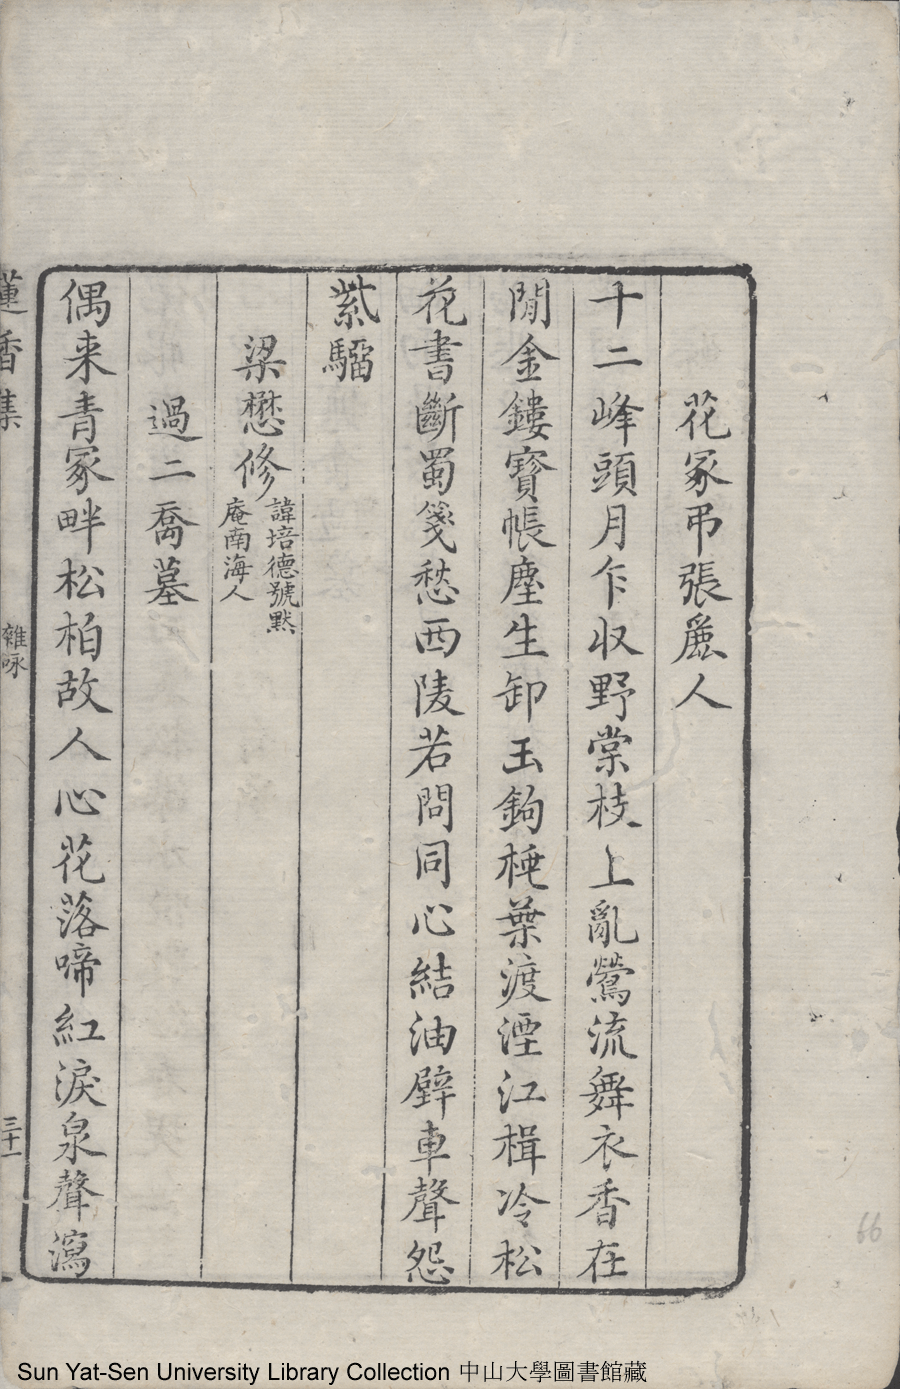 花冢弔張麗人
十二峰頭月乍收野棠枝上亂鶯流舞衣香在
閒金鏤寶帳塵生卸玉鉤桃葉渡湮江楫冷松
花書斷蜀箋愁西陵若問同心結油壁車聲怨
紫騮
梁懋修
諱培德號黙
庵南海人
過二喬墓
偶来青冢畔松柏故人心花落啼紅淚泉聲瀉
蓮香集
雜咏
三十一
66
Sun Yat-Sen University Library Collection 中山大學圖書館藏